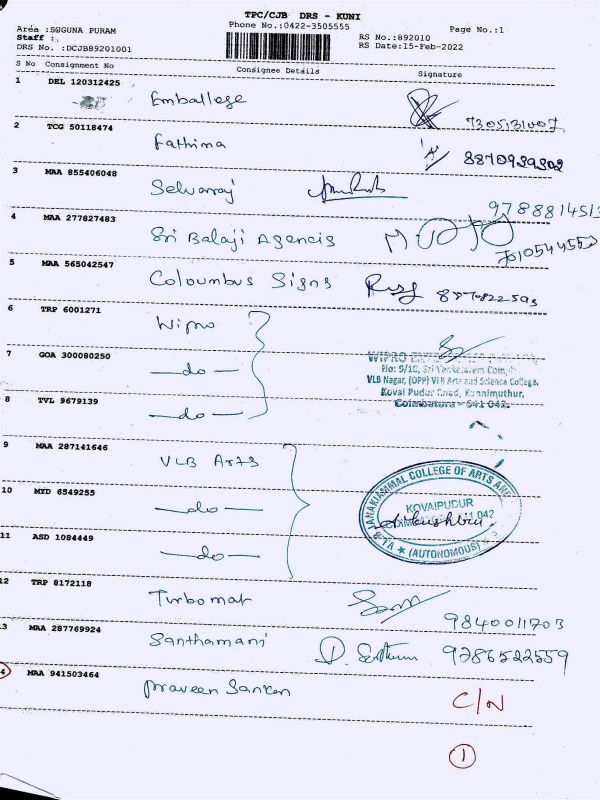 TPC/CJB DRS - KUNI
Phone No.:0422-3505555
Page No.:1
Aréa :SUGUNA PURAM
Staff :.
RS No.:892010
DRS No. :DCJB89201001
RS Date:15-Feb-2022
S No Consignment No Consignee Details Signature
1 DEL 120312425 Emballege 7305131007
2 TCG 50118474 Fathima 8870939302
3 MAA 855406048 Selvarraj
4 MAA 277827483 Sri Balaji Agencis 9788814513
5 MAA 565042547 Coloumbus Signs
6 TRP 6001271 Wipro
7 GOA 300080250 —do—
8 TVL 9679139 —do—
WIPRO
No: 9/1C, Sri Venkateram Com,
VLB Nagar, (OPP) VLB Arts and Science College,
Kovai Pudur Road, Kunnimuthur,
Coimbatore - 641 042.
9 MAA 287141646 VLB Arts
10 MYD 6549255 —do—
11 ASD 1084449 —do—
JANAKIAMMAL COLLEGE OF ARTS AND
KOVAIPUDUR
042
V.L.B
★ (AUTONOMOUS)
12 TRP 8172118 Turbomat 9840011703
3 MAA 287769924 Santhamani 9786522559
4 MAA 941503464 Praveen Sankar C/N
1